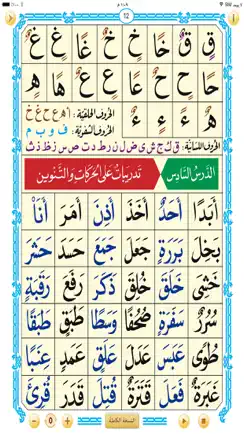 12
قٍ قٌ خًا خٍ خٌ غًا غٍ غٌ
حًا حٍ حٌ عًا عٍ عٌ هًا هٍ
هٌ ءً ءٍ ءٌ الحروف الحلقية: أ هـ ع ح غ خ
الحروف الشفوية: ف و ب م
الحروف اللسانية: ق ك ج ش ي ض ل ن ر ط د ت ص س ز ظ ذ ث
الدَّرْسُ السَّادِسُ تَدْرِيبَاتٌ عَلَى الحَرَكَاتِ وَالتَّنْوِينِ
أَبَدًا أَحَدٌ أَخَذَ أَذِنَ أَمَرَ أَنَا
بَخِلَ بَرَرَةٍ جَعَلَ جَمَعَ حَسَدَ حَشَرَ
خَشِيَ خَلَقَ خُلِقَ ذَكَرَ رَفَعَ رَقَبَةٍ
سُرُرٌ سَفَرَةٍ صُحُفًا وَسَطًا طَبَقٍ طَبَقًا
طُوًى عَبَسَ عَدَلَ عَلَقٍ عَمَدٍ عِنَبًا
غَبَرَةٌ فَعَلَ قَتَرَةٌ قُتِلَ قَدَرَ قُرِئَ
- 0 + النسخة الكاملة